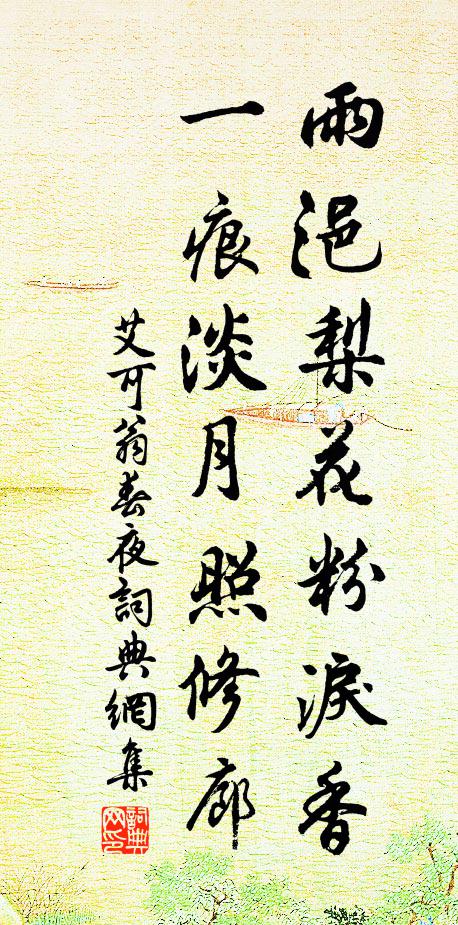 雨浥梨花粉淚香
一痕淡月照修廊
艾可翁春夜詞典網集
詞典網印